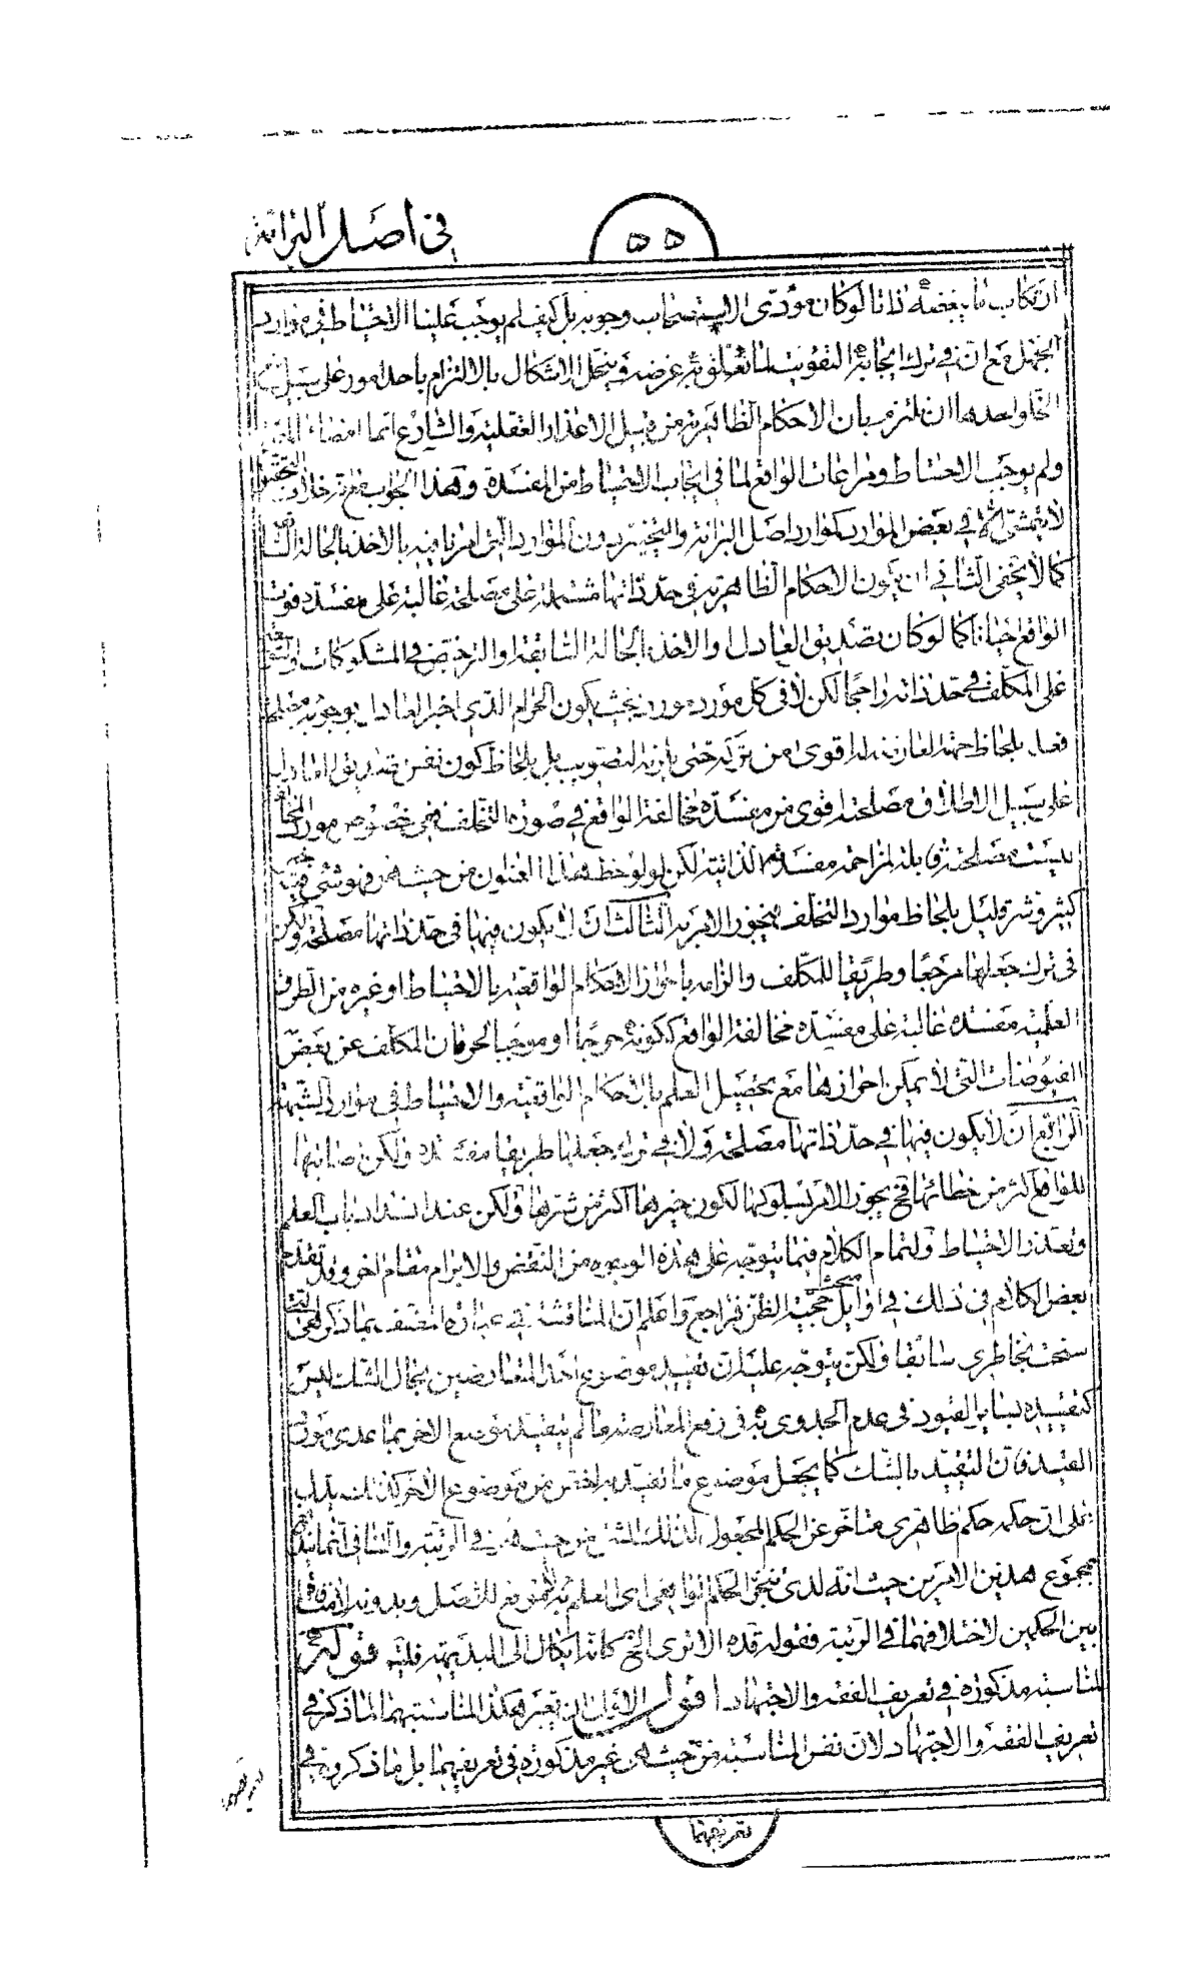 في اصل البرائة
٥٥
ارتكاب ما يبغضه ذاتا لو كان مؤدّى الاستصحاب وجوبه بل كيف لم يوجب علينا الاحتياط في موارد
الجهل مع انّ في ترك ايجابه التفويت لما تعلق به غرضه فينحل الاشكال بالالتزام باحد امور على سبيل
الخلو احدها ان نلتزم بان الاحكام الظاهرية من قبيل الاعذار العقلية والشارع انما امضاء
ولم يوجب الاحتياط ومراعات الواقع لما في ايجاب الاحتياط من المفسدة وهذا الجواب مع
لا يتمشى الا في بعض الموارد كموارد اصل البرائة والتخيير دون الموارد التي امرنا فيه بالاخذ بالحالة
كما لا يخفى الثاني ان يكون الاحكام الظاهرية في حدّ ذاتها مشتملة على مصلحة غالبة على مفسدة فوت
الواقع احيانا كما لو كان تصديق العادل والاخذ بالحالة السابقة والترخيص في المشكوكات
على المكلف في حدّ ذاته راجحا لكن لا في كل مورد مورد بحيث يكون الحرام الذي اخبر العادل بوجوبه مصلحة
فعله بلحاظ جهته العارضة له اقوى من تركه حتى يلزم التصويب بل بلحاظ كون نفس تصديق العادل
على سبيل الاطلاق مصلحته اقوى من مفسدة مخالفة الواقع في صورة التخلف ففي خصوص مورد
ليست مصلحته قابلة لمزاحمة مفسدته الذاتية لكن لو لوحظ هذا العنوان من حيث هو فهو شيء فيه
كثير وشر قليل بلحاظ موارد التخلف فيجوز الامر به الثالث ان لا يكون فيها في حدّ ذاتها مصلحة ولكن
في ترك جعلها مرجعا وطريقا للمكلف والزامه باحراز الاحكام الواقعية بالاحتياط او غيره من الطرق
العلمية مفسدة غالبة على مفسدة مخالفة الواقع ككونه حرجا او موجبا لحرمان المكلف عن بعض
الفيوضات التي لا يمكن احرازها مع تحصيل العلم بالاحكام الواقعية والاحتياط في موارد الشبهة
الرابع ان لا يكون فيها في حدّ ذاتها مصلحة ولا في ترك جعلها طريقا مفسدة ولكن اصابتها
للواقع اكثر من خطائها فح يجوز الامر بسلوكها لكون خيرها اكثر من شرها ولكن عند انسداد باب العلم
وتعذر الاحتياط ولتمام الكلام فيما يتوجه على هذه الوجوه من النقض والابرام مقام اخر وقد تقدم
بعض الكلام في ذلك في اوايل مبحث حجية الظن فراجع واعلم ان المناقشة في عبارة المصنف بما ذكر
سنحت بخاطري سابقا ولكن يتوجه عليها ان تقييد موضوع احد المتعارضين بحال الشك ليس
كتقييده بساير القيود في عدم الجدوى به في رفع المعارضة ما لم يتقيد موضوع الاخر بما عدى مورد
القيد فان التقييد بالشك كما يجعل موضوع ما تقيد به اخص من موضوع الاخر كذلك يدل
على ان حكمه حكم ظاهري متأخر عن الحكم المجعول لذلك الشيء من حيث هو في الرتبة والتنافي انما
بمجموع هذين الامرين حيث انه لدى تنجز الحكم الواقعي اى العلم به لا موقع للاصل وبدونه لا منافاة
بين الحكمين لاختلافهما في الرتبة فقوله قده الا ترى الخ كانه ايكال الى البديهة فليتأمل قوله
لمناسبة مذكورة في تعريف الفقه والاجتهاد اقول الاولى ان تعبر هكذا لمناسبتهما لما ذكر في
تعريف الفقه والاجتهاد لان نفس المناسبة من حيث هي غير مذكورة في تعريفهما بل ما ذكروه في
تعريفهما